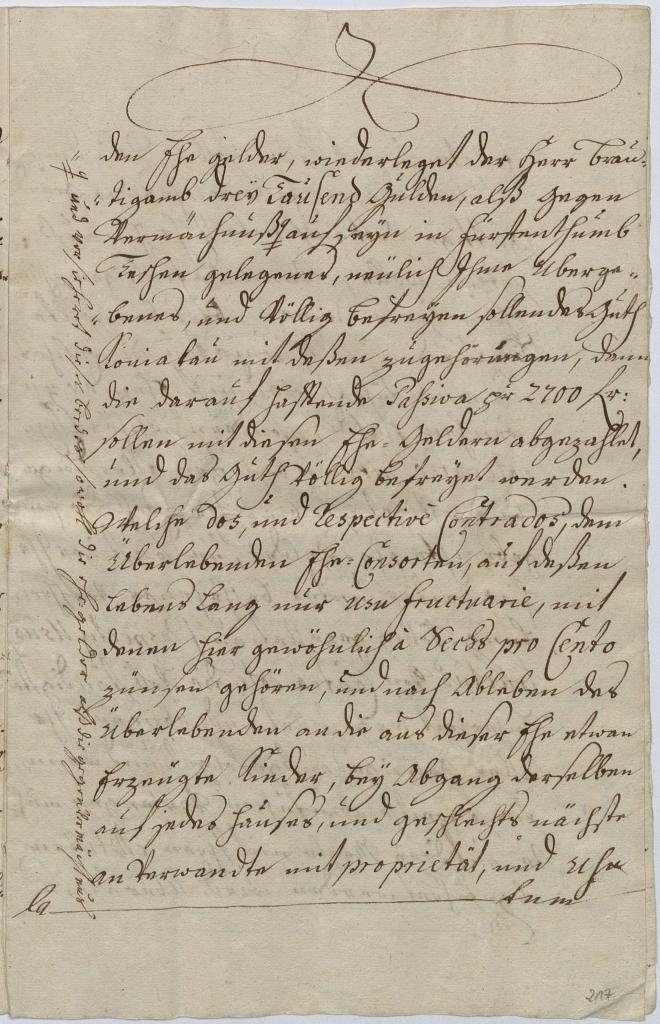 den Ehe gelder, wiederleget der Herr Bräu-
"tigamb drey Tausend Gulden, alß gegen
Vermächnuß auf seyn in Fürstenthumb
Teschen gelegenes, neülich Ihme überge-"
"benes, und Völlig befreyen sollendes Guth
Koniakau mit deßen zügehörungen, dann
die darauf hafftende Passiva pr 2700 fr:
sollen mit diesen Ehe-Geldern abgezahlet,
und das Guth Völlig befreyet werden.
Welche dos, und respectivè Contrados, dem
Überlebenden Ehe-Consorten, auf deßen
lebens lang nur usu fructuarie, mit
denen hier gewöhnlich à Sechs pro Cento
zünsen gehören, und nach Ableben des
Überlebenden an die aus dieser Ehe etwan
Erzeügte Kinder, bey Abgang derselben
auf jedes Haußes, und geschlechts nächste
an Verwandte mit proprietät, und Usu
fru
und die Ehe-gelder alß die gegenvermächtnus
217